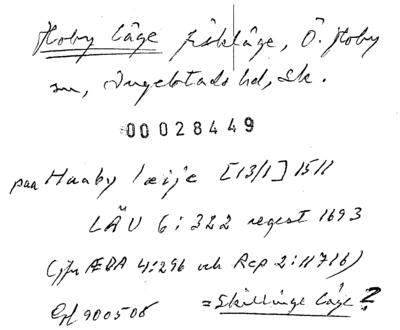 Hoby läge fiskläge, Ö. Hoby
sn, Ingelstads hd, Sk.
00028449
paa Haaby leije [13/1] 1511
LÄU 6:322 regest 1693
(jfr ÆDA 4:296 och Rep 2:11716)
900506
=Skillinge läge?